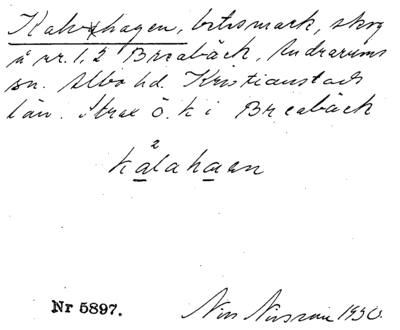 Kalvhagen, betesmark, skog
å nr. 1, 2 Breabäck, Andrarums
sn. Albo hd. Kristianstads
län. Strax ö. k i Breabäck
2
kalahaan
Nr 5897.
Nils Nilsson 1930.